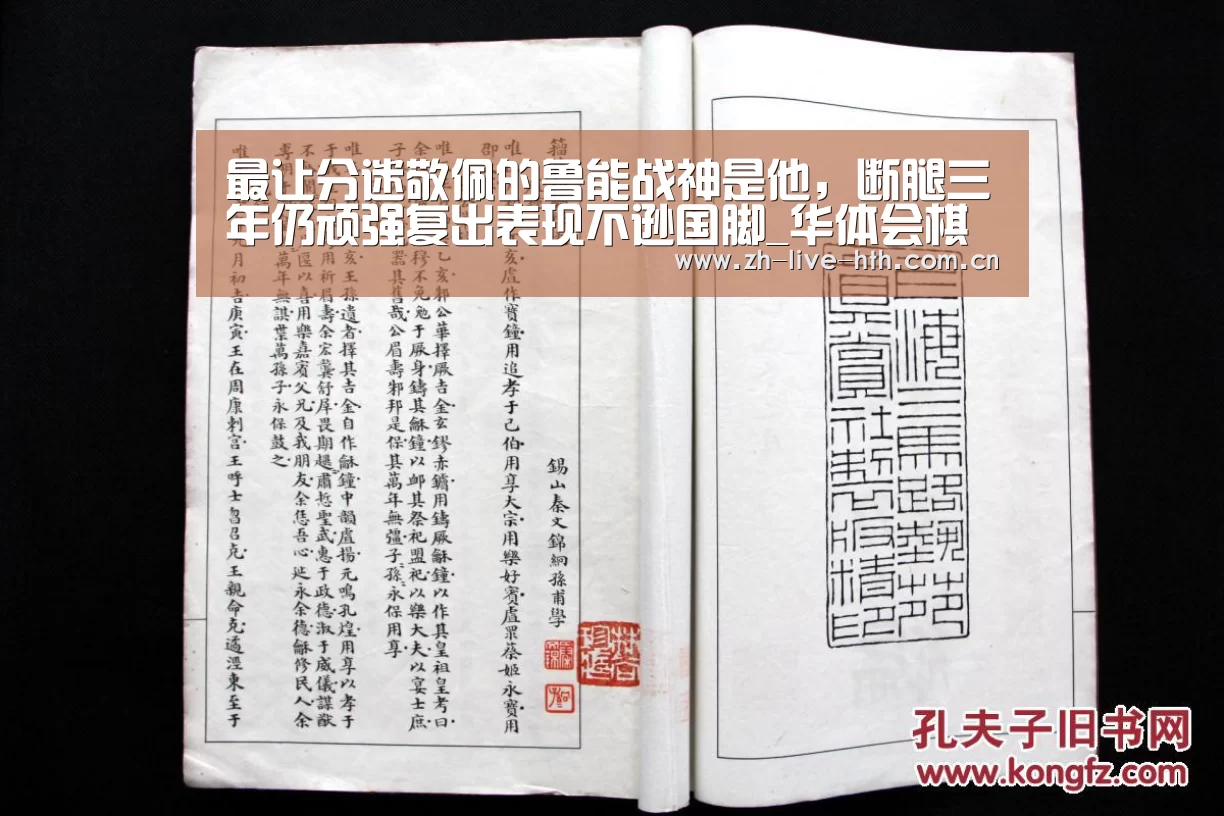 最让分迷敬佩的鲁能战神是他，断腿三
年仍顽强复出表现不逊国脚_华体会棋
www.zh-live-hth.com.cn
上海三馬路藝苑
真賞社製版精印
籀
錫山秦文錦絅孫甫學
唯 亥虘作寶鐘用追孝于己伯用享大宗用樂好賓虘眾蔡姬永寶用
邵
唯 乙亥邾公華擇厥吉金玄鏐赤鏞用鑄厥龢鐘以作其皇祖皇考曰
余 穆不兔勉于厥身鑄其龢鐘以卹其祭祀盟祀以樂大夫以宴士庶
子 器其舊哉公眉壽邾邦是保其萬年無彊子孫永保用享
唯 亥王孫遺者擇其吉金自作龢鐘中韻虘揚元鳴孔煌用享以孝于
于 用祈眉壽余宏龔舒屖畏期趩肅悊聖武惠于政德淑于威儀謀猷
不 匽以喜用樂嘉賓父兄及我朋友余恁吾心延永余德龢修民人余
尃 萬年無諆葉萬孫子永保鼓之
唯 九月初吉庚寅王在周康剌宮王呼士曶召克王親命克遹涇東至于
孔夫子旧书网
www.kongfz.com